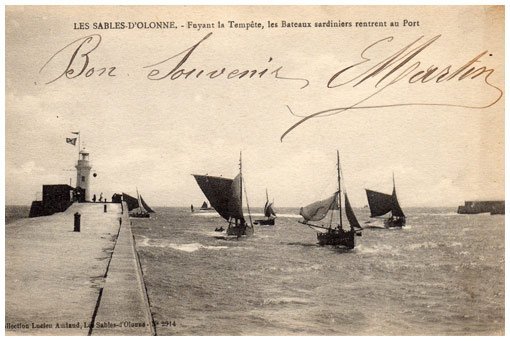 LES SABLES-D'OLONNE. - Fuyant la Tempête, les Bateaux sardiniers rentrent au Port
Bon Souvenir EMartin
Collection Lucien Amiaud, Les Sables-d'Olonne - Nº 2914